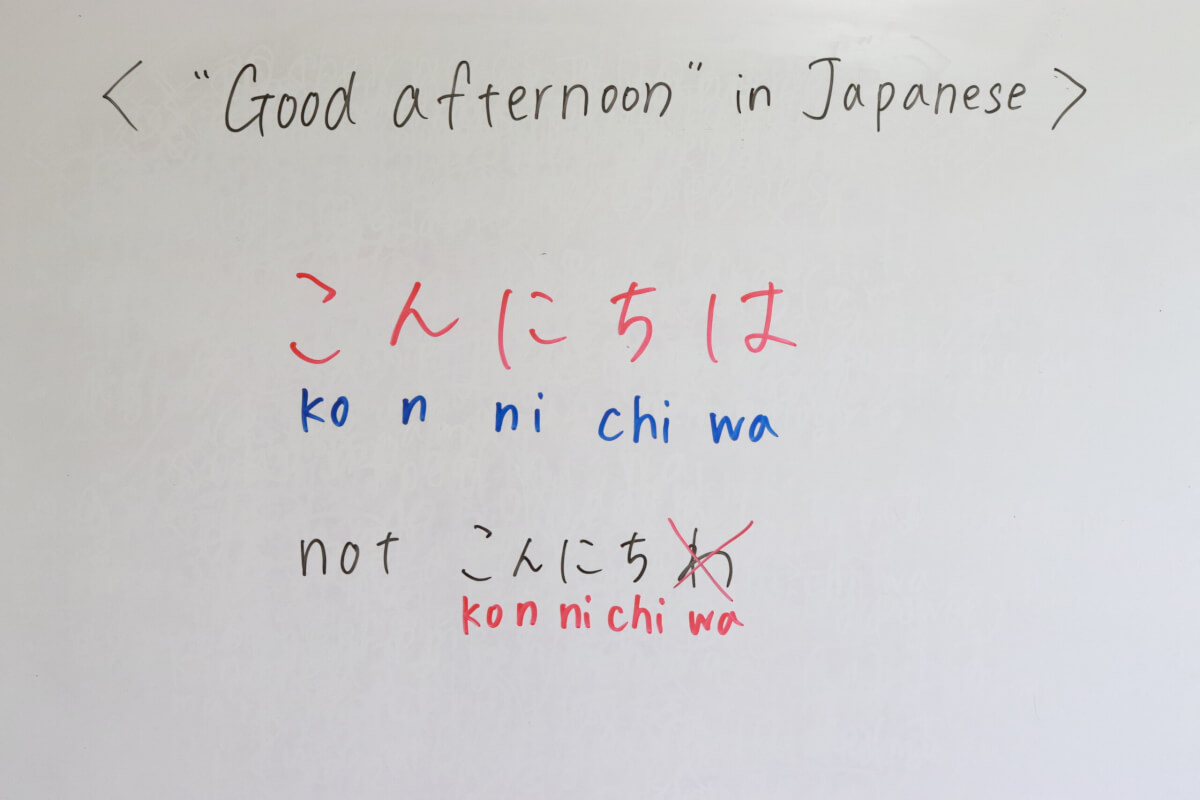 < "Good afternoon" in Japanese >
こんにちは
ko n ni chi wa
not こんにちわ
kon ni chi wa